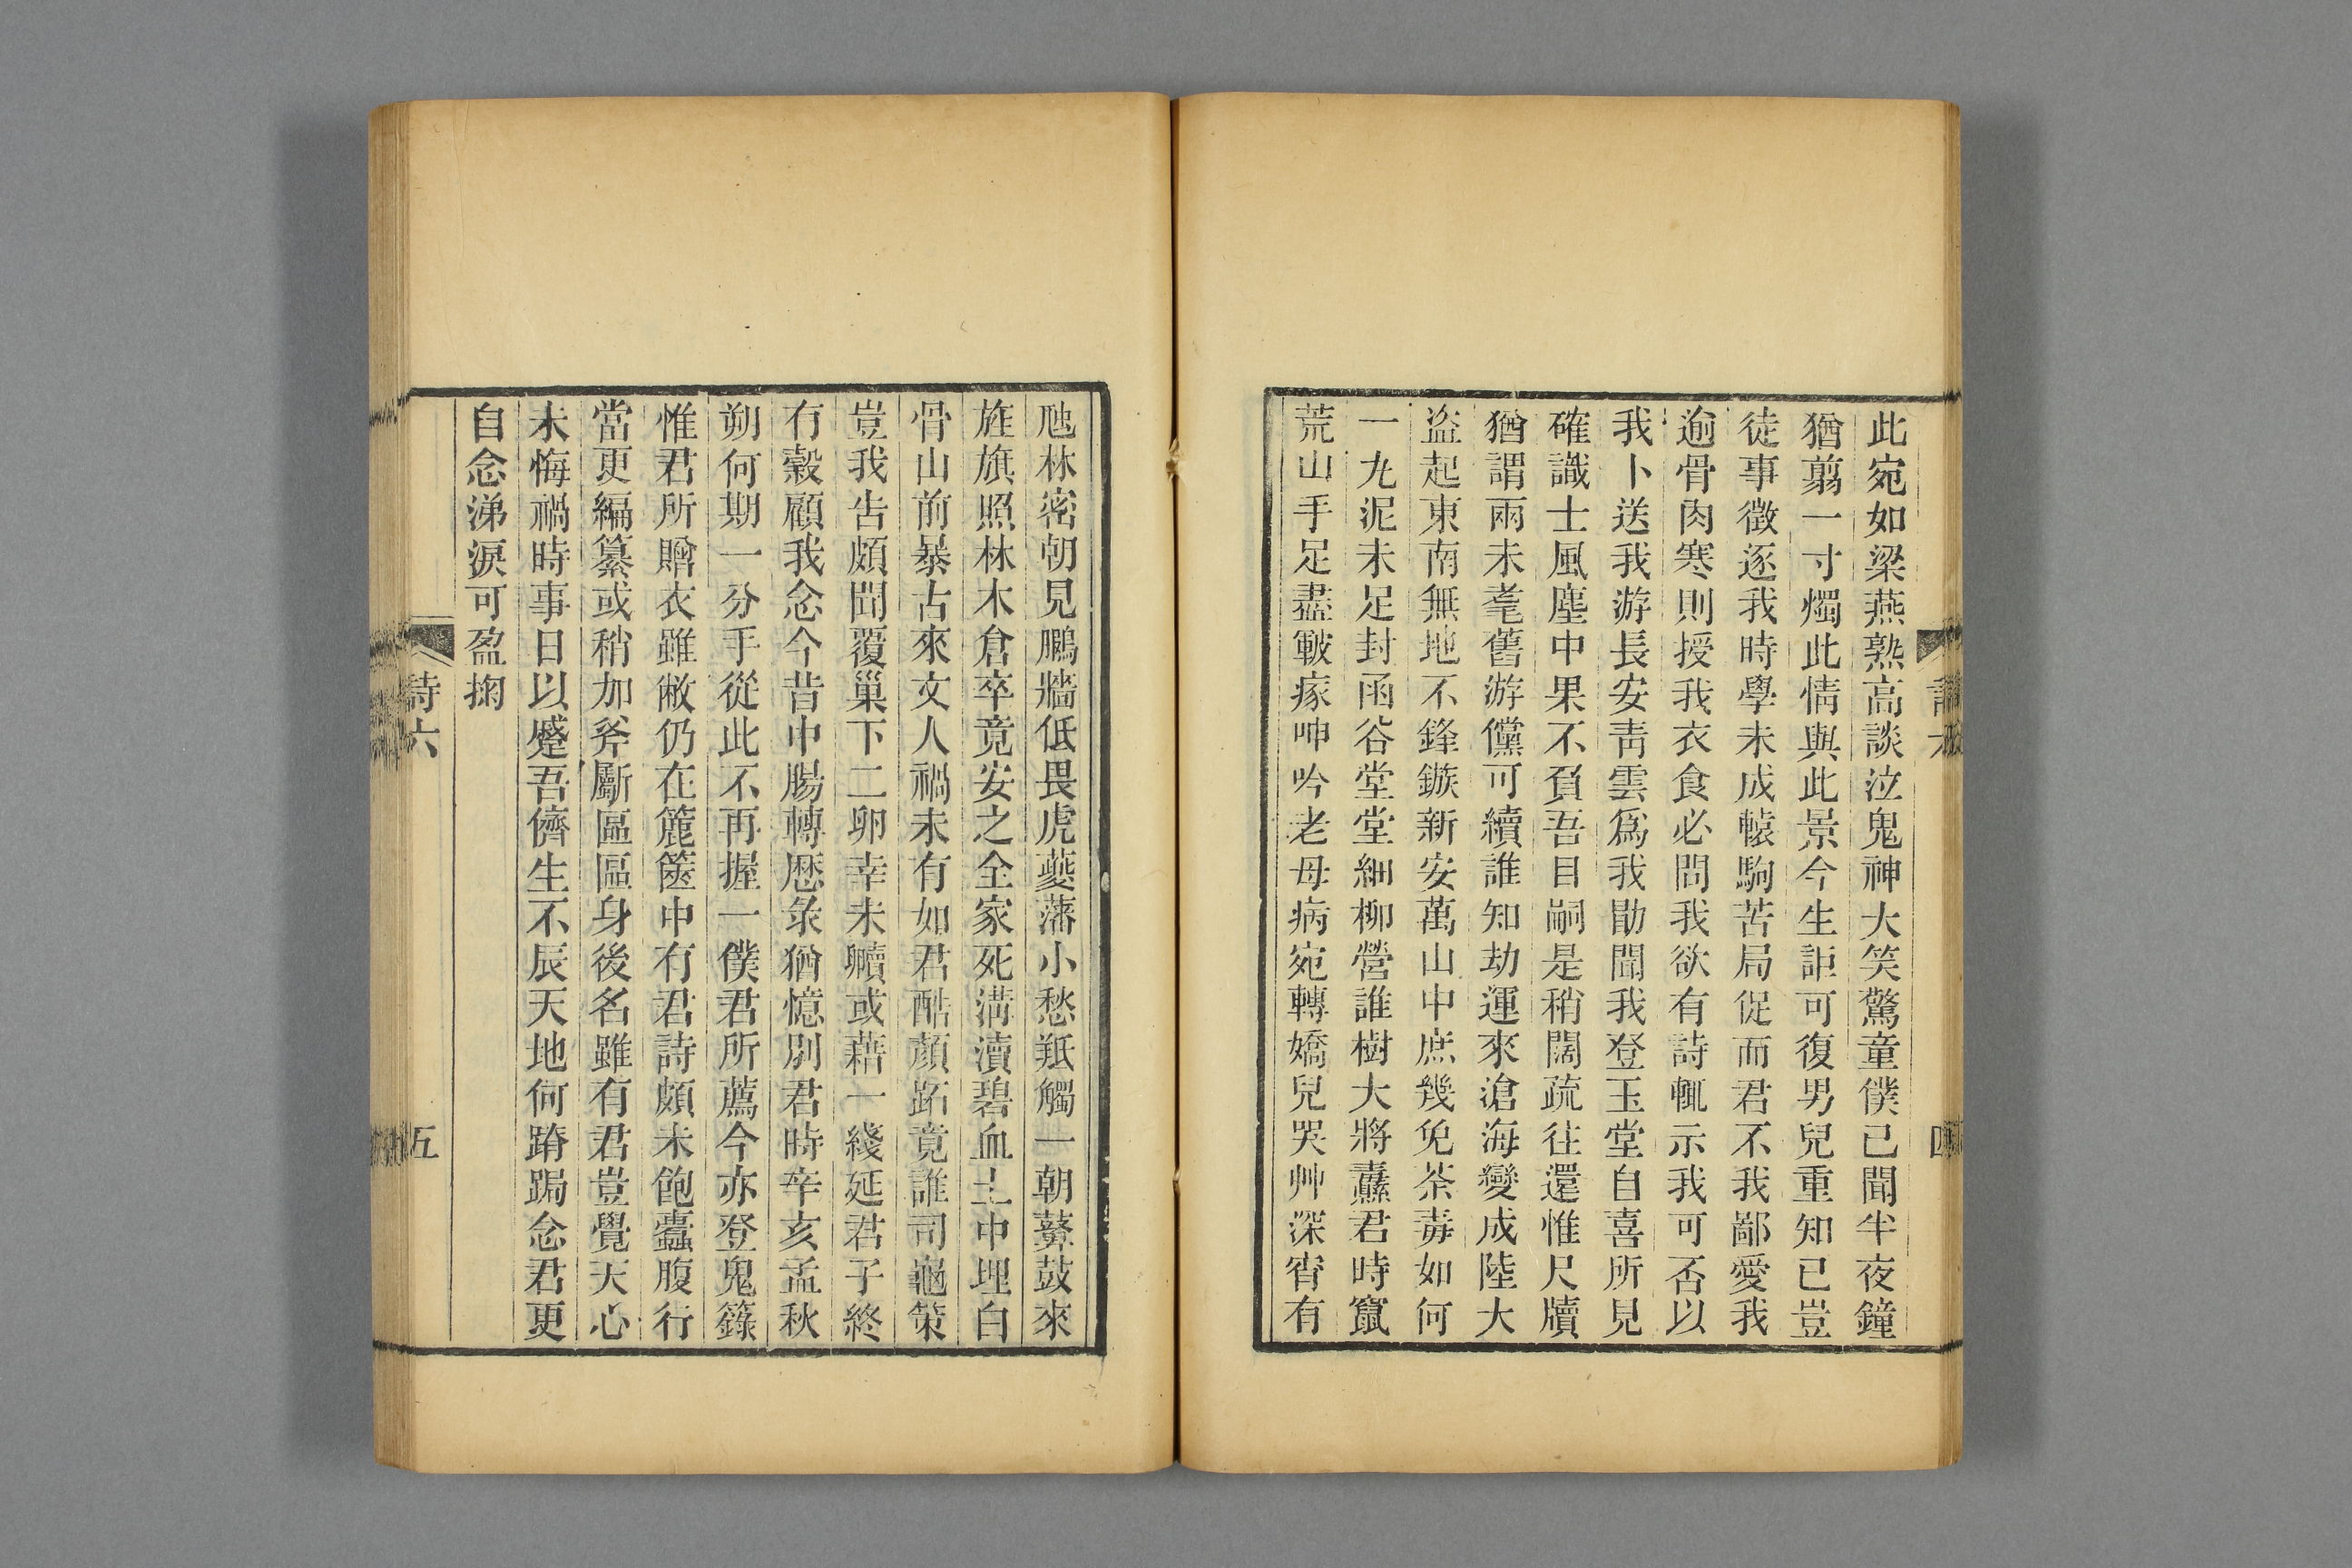 此宛如梁燕熟高談泣鬼神大笑驚童僕已聞半夜鐘
猶翦一寸燭此情與此景今生詎可復男兒重知己豈
徒事徵逐我時學未成轅駒苦局促而君不我鄙愛我
逾骨肉寒則授我衣食必問我欲有詩輒示我可否以
我卜送我游長安靑雲爲我勖聞我登玉堂自喜所見
確識士風塵中果不負吾目嗣是稍闊疏往還惟尺牘
猶謂兩未耄舊游儻可續誰知劫運來滄海變成陸大
盜起東南無地不鋒鏃新安萬山中庶幾免荼毒如何
一丸泥未足封函谷堂堂細柳營誰樹大將纛君時竄
荒山手足盡皸瘃呻吟老母病宛轉嬌兒哭艸深宵有
虺林密朝見鵩牆低畏虎蘷藩小愁羝觸一朝鼛鼓來
旌旗照林木倉卒竟安之全家死溝瀆碧血土中埋白
骨山前暴古來文人禍未有如君酷顏跖竟誰司龜策
豈我告頗聞覆巢下二卵幸未殰或藉一綫延君子終
有穀顧我念今昔中腸轉歷彔猶憶別君時辛亥孟秋
朔何期一分手從此不再握一僕君所薦今亦登鬼籙
惟君所贈衣雖敝仍在簏篋中有君詩頗未飽蠹腹行
當更編纂或稍加斧斸區區身後名雖有君豈覺天心
未悔禍時事日以蹙吾儕生不辰天地何蹐跼念君更
自念涕淚可盈掬
詩六
五